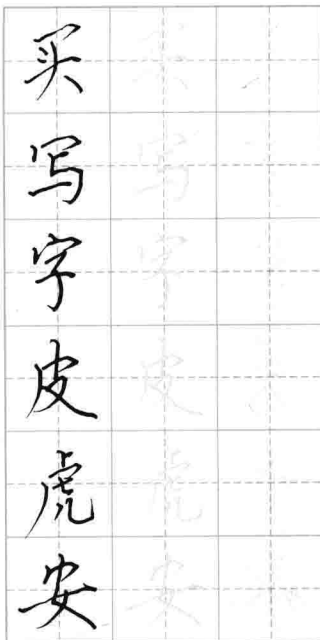 买 买
写 写
字 字
皮 皮
虎 虎
安 安